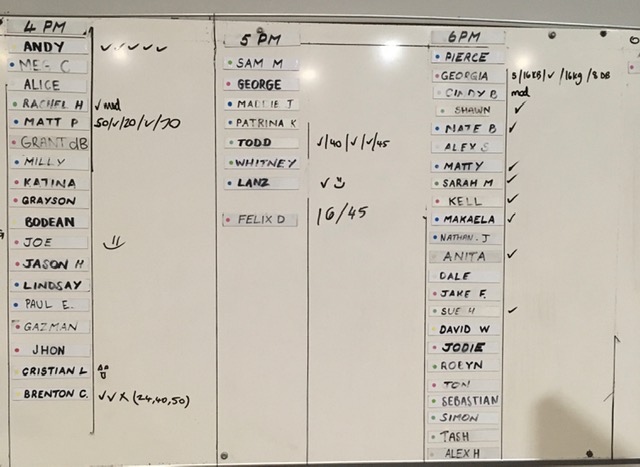 4 PM
ANDY ✓✓✓✓✓
MEG C
ALICE
RACHEL H ✓ mod
MATT P 50/✓/20/✓/70
GRANT dB
MILLY
KATINA
GRAYSON
BODEAN
JOE
JASON H
LINDSAY
PAUL E.
GAZMAN
JHON
CRISTIAN L
BRENTON C. ✓✓X (24,40,50)
5 PM
SAM M
GEORGE
MADDIE T
PATRINA K
TODD ✓/40/✓/✓/45
WHITNEY
LANZ ✓
FELIX D 16/45
6PM
PIERCE
GEORGIA 5/16KB/✓/16kg/8DB
CINDY B mod
SHAWN ✓
NATE B ✓
ALEX S
MATTY ✓
SARAH M ✓
KELL ✓
MAKAELA ✓
NATHAN. J
ANITA ✓
DALE
JAKE F.
SUE H ✓
DAVID W
JODIE
ROBYN
TON
SEBASTIAN
SIMON
TASH
ALEX H